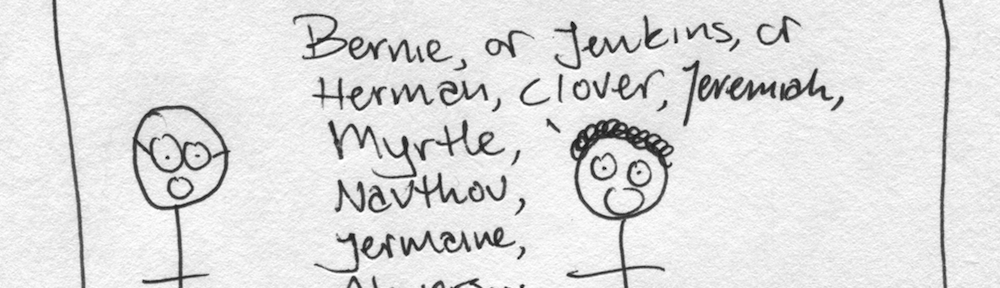 Bernie, or Jenkins, or
Herman, Clover, Jeremiah,
Myrtle,
Navthov,
Jermaine,